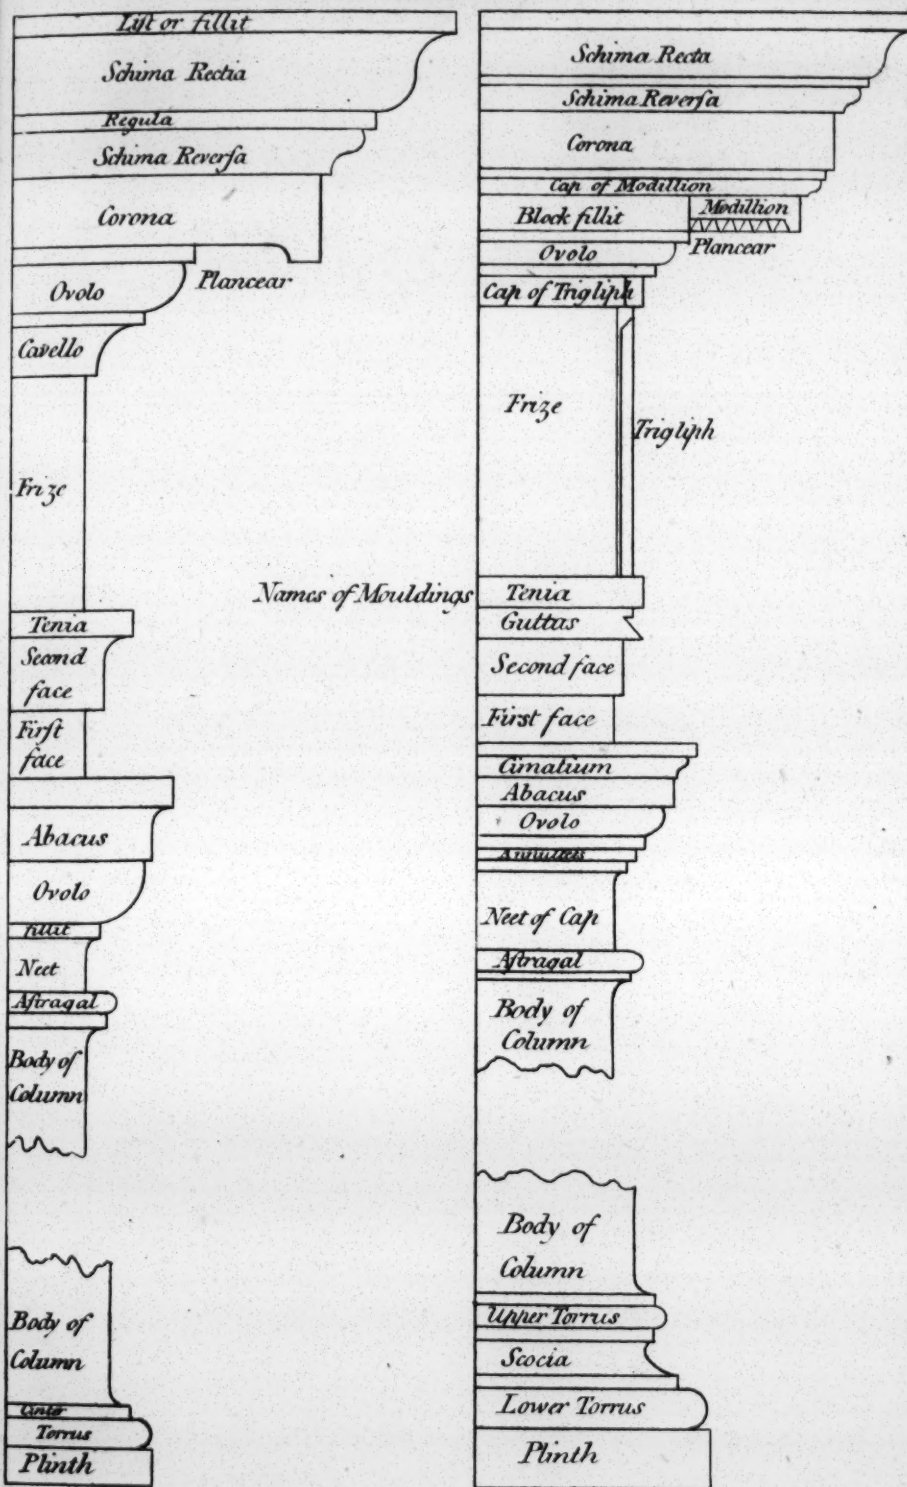 Liſt or fillit
Schima Rectia
Regula
Schima Reverſa
Corona
Plancear
Ovolo
Cavello
Frize
Tenia
Second
face
Firſt
face
Abacus
Ovolo
fillit
Neet
Aſtragal
Body of
Column
Body of
Column
Cinter
Torrus
Plinth
Names of Mouldings
Schima Recta
Schima Reverſa
Corona
Cap of Modillion
Block fillit
Modillion
Plancear
Ovolo
Cap of Trigliph
Frize
Trigliph
Tenia
Guttas
Second face
Firſt face
Cimatium
Abacus
Ovolo
Annullets
Neet of Cap
Aſtragal
Body of
Column
Body of
Column
Upper Torrus
Scocia
Lower Torrus
Plinth